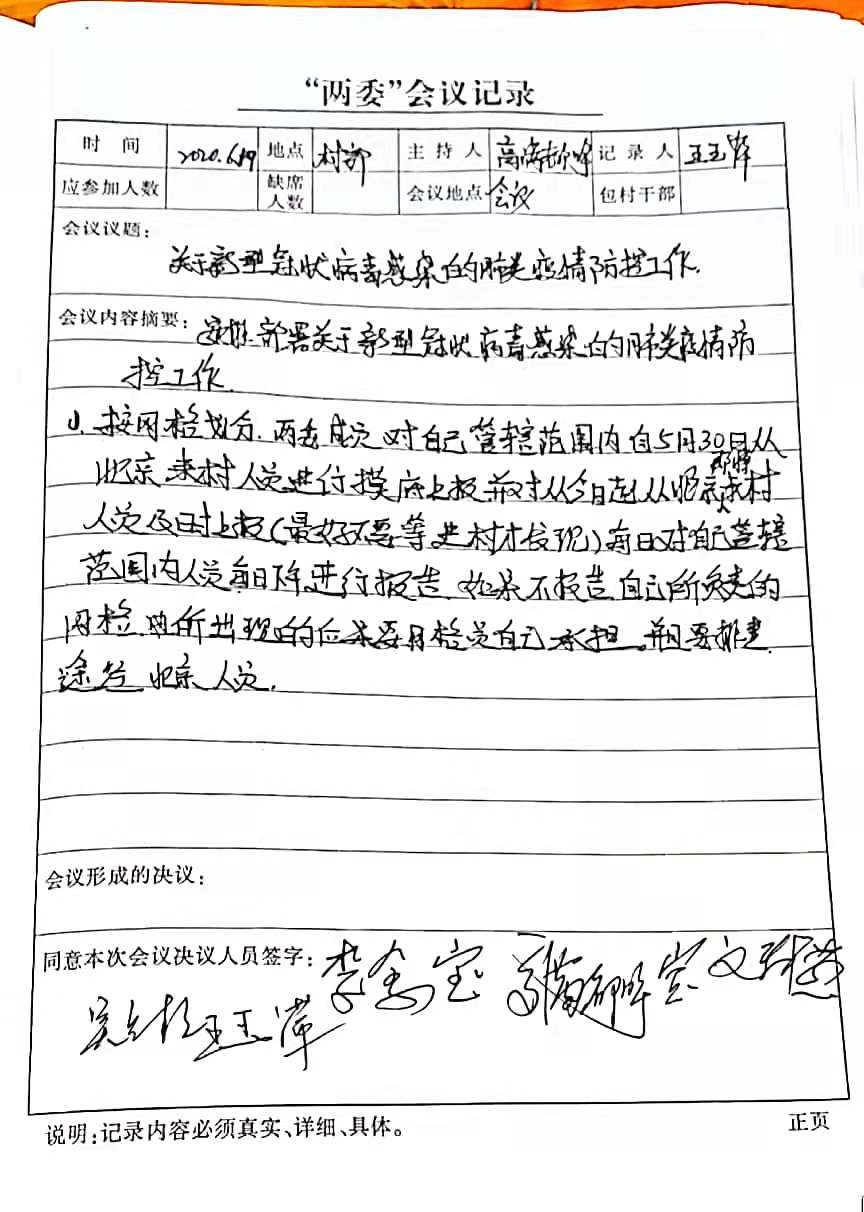 “两委”会议记录
时 间 2020.6.19 地点 村部 主 持 人 记 录 人 王玉萍
应参加人数 缺席人数 会议地点 会议 包村干部
会议议题:
关于新型冠状病毒感染的肺炎疫情防控工作.
会议内容摘要: 安排部署关于新型冠状病毒感染的肺炎疫情防
控工作.
1. 按网格划分. 两委成员对自己管辖范围内自5月30日从
北京来村人员进行摸底上报并对从今日起从北京来村
人员及时上报(最好不要等进村才发现)每日对自己管辖
范围内人员每日下午进行报告. 如果不报告自己所负责的
网格 所出现的后果要网格员自己承担. 并且要排查
途经北京人员.
会议形成的决议:
同意本次会议决议人员签字: 李金宝
王玉萍
说明:记录内容必须真实、详细、具体。 正页